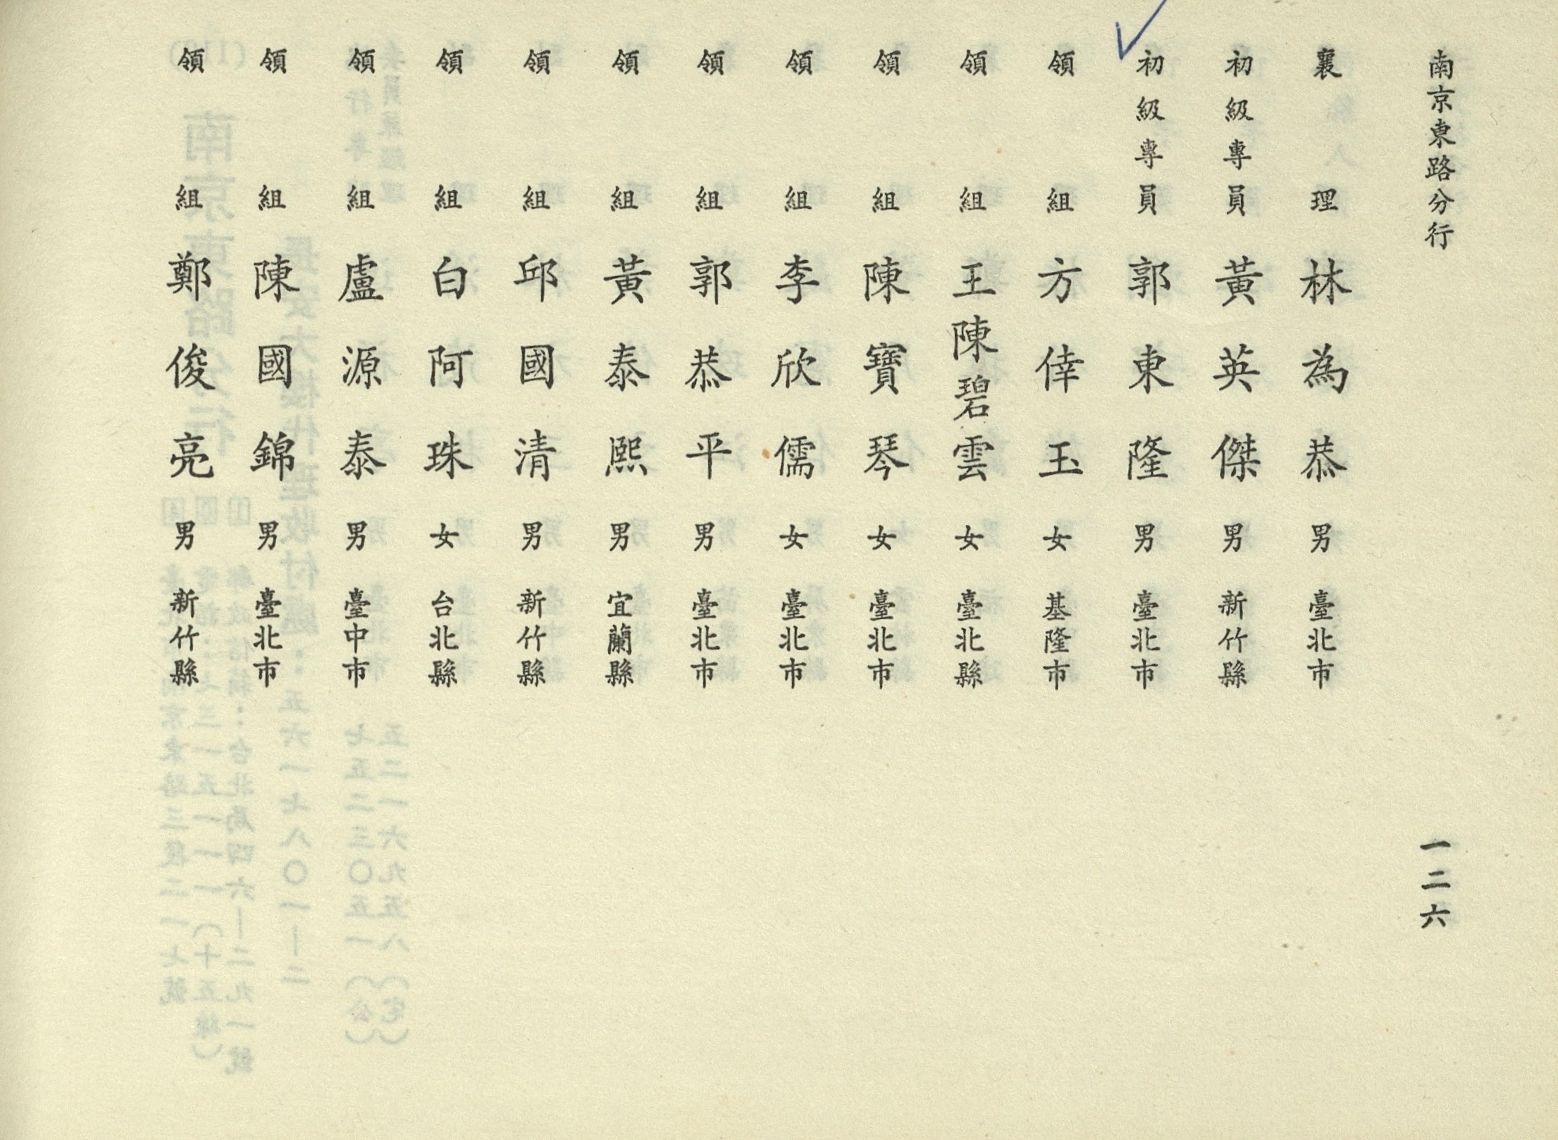 南京東路分行 一二六
襄理 林為恭 男 臺北市
初級專員 黃英傑 男 新竹縣
初級專員 郭東隆 男 臺北市
領組 方倖玉 女 基隆市
領組 王陳碧雲 女 臺北縣
領組 陳寶琴 女 臺北市
領組 李欣儒 女 臺北市
領組 郭恭平 男 臺北市
領組 黃泰熙 男 宜蘭縣
領組 邱國清 男 新竹縣
領組 白阿珠 女 台北縣
領組 盧源泰 男 臺中市
領組 陳國錦 男 臺北市
領組 鄭俊亮 男 新竹縣